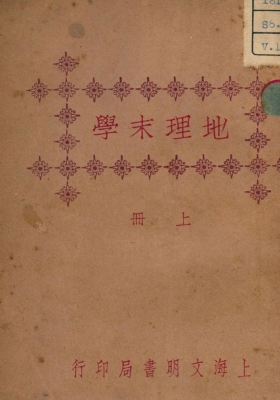 地理末學
上冊
上海文明書局印行
V.1